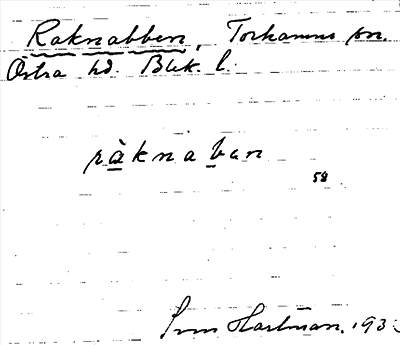 Raknabben, Torhamns sn.
Östra hd. Blek. l.
ràknaban
58
Hartman, 193